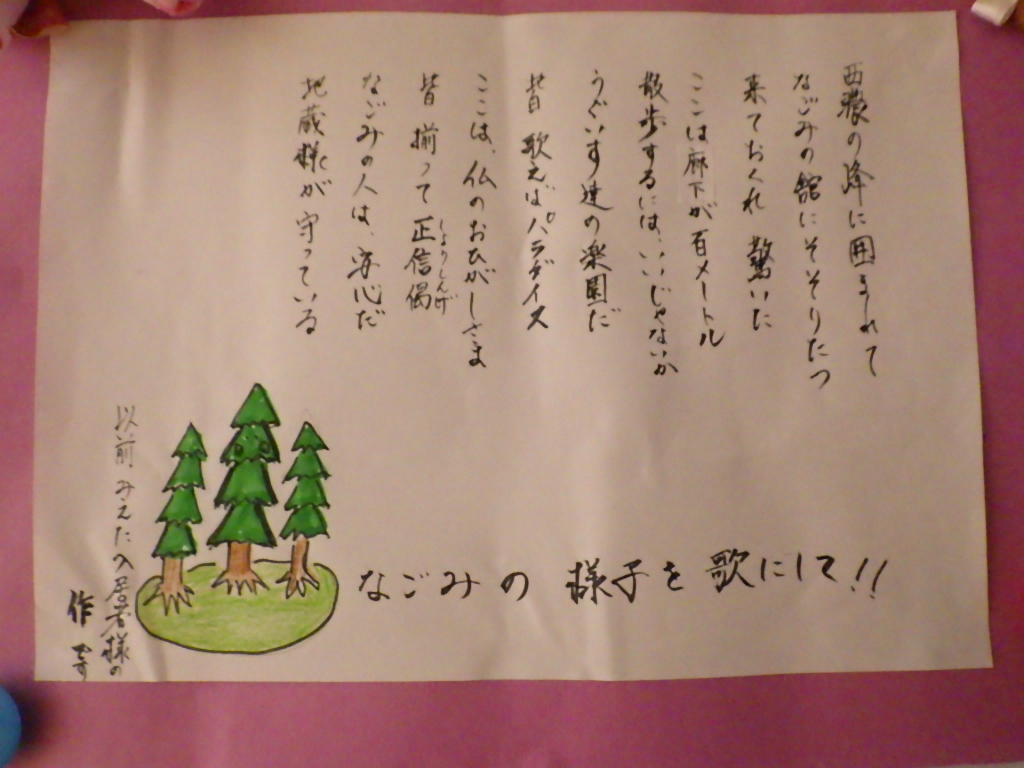 西濃の峰に囲まれて
なごみの舘にそそりたつ
来ておくれ 驚いた
ここは廊下が百メートル
散歩するには、いいじゃないか
うぐいす達の楽園だ
皆 歌えばパラダイス
ここは、仏のおひがしさま
皆 揃って 正信偈
しょうしんげ
なごみの人は、安心だ
地蔵様が守っている
なごみの 様子を歌にして!!
以前みえた入居者様の
作です